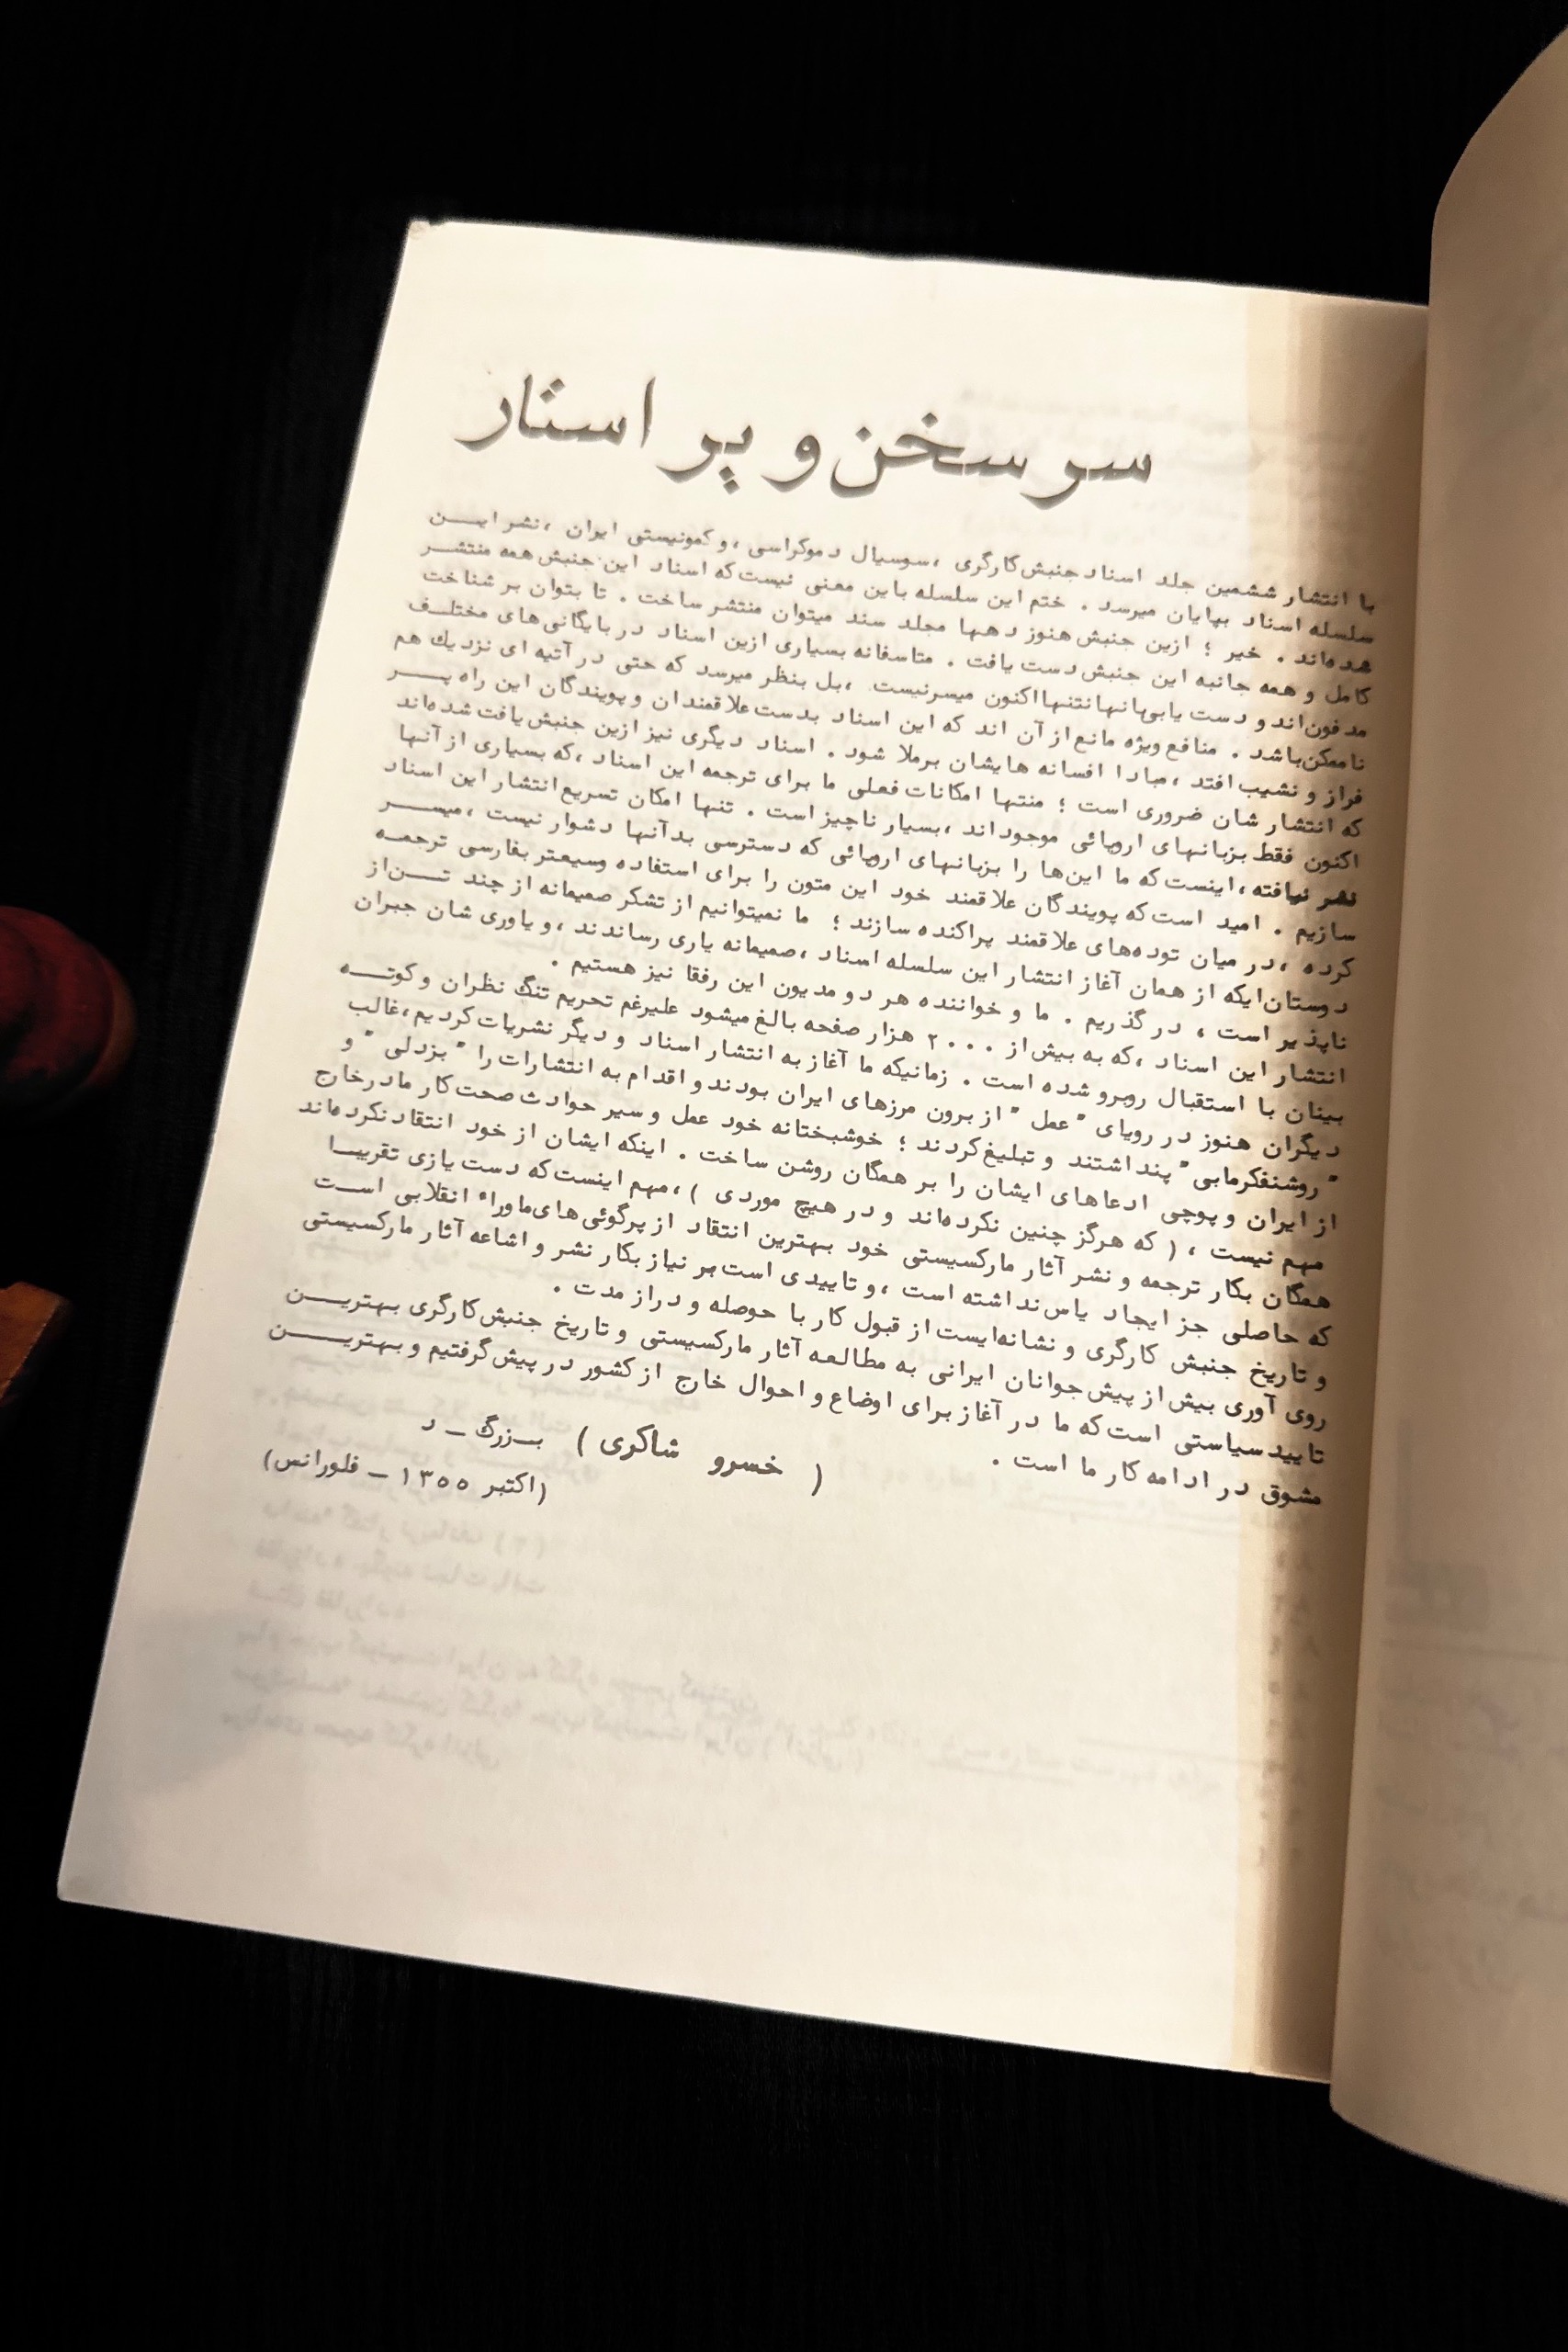 سر سخن و پر استار
با انتشار ششمین جلد اسناد جنبش کارگری ، سوسیال دموکراسی ، و کمونیستی ایران ، نشر ایـــن
سلسله اسناد بپایان میرسد . ختم این سلسله باین معنی نیست که اسناد این جنبش همه منتشــر
شده‌اند . خیر ؛ ازین جنبش هنوز دهها مجلد سند میتوان منتشر ساخت . تا بتوان بر شناخت
کامل و همه جانبه این جنبش دست یافت . متاسفانه بسیاری ازین اسناد در بایگانی‌های مختلـف
مدفون‌اند و دست یابی‌بانها نتنها اکنون میسر نیست ، بل بنظر میرسد که حتی در آتیه ای نزدیك هم
نا ممکن باشد . منافع ویژه مانع از آن اند که این اسناد بدست علاقمندان و پویندگان این راه پـــر
فراز و نشیب افتد ، مبادا افسانه هایشان برملا شود . اسناد دیگری نیز ازین جنبش یافت شده‌اند
که انتشار شان ضروری است ؛ منتها امکانات فعلی ما برای ترجمه این اسناد ، که بسیاری از آنها
اکنون فقط بزبانهای اروپائی موجوداند ، بسیار ناچیز است . تنها امکان تسریع انتشار این اسناد
نشر نیافته ، اینست که ما این‌ها را بزبانهای اروپائی که دسترسی بدآنها دشوار نیست ، میســـر
سازیم . امید است که پویندگان علاقمند خود این متون را برای استفاده وسیعتر بفارسی ترجمـه
کرده ، در میان توده‌های علاقمند پراکنده سازند ؛ ما نمیتوانیم از تشکر صمیمانه از چند تـــن از
دوستان ایکه از همان آغاز انتشار این سلسله اسناد ، صمیمانه یاری رساندند ، و یاوری شان جبران
ناپذیر است ، در گذریم . ما و خواننده هر دو مدیون این رفقا نیز هستیم .
انتشار این اسناد ، که به بیش از ۲۰۰۰ هزار صفحه بالغ میشود علیرغم تحریم تنگ نظران و کوتـــه
بینان با استقبال روبرو شده است . زمانیکه ما آغاز به انتشار اسناد و دیگر نشریات کردیم ، غالب
دیگران هنوز در رویای " عمل " از برون مرزهای ایران بودند و اقدام به انتشارات را " بزدلی " و
" روشنفکرمابی " پنداشتند و تبلیغ کردند ؛ خوشبختانه خود عمل و سیر حوادث صحت کار ما در خارج
از ایران و پوچی ادعاهای ایشان را بر همگان روشن ساخت . اینکه ایشان از خود انتقاد نکرده‌اند
مهم نیست ، ( که هرگز چنین نکرده‌اند و در هیچ موردی ) ، مهم اینست که دست یازی تقریبــا
همگان بکار ترجمه و نشر آثار مارکسیستی خود بهترین انتقاد از پرگوئی های ماوراء انقلابی اســت
که حاصلی جز ایجاد یاس نداشته است ، و تاییدی است بر نیاز بکار نشر و اشاعه آثار مارکسیستی
و تاریخ جنبش کارگری و نشانه‌ایست از قبول کار با حوصله و دراز مدت .
روی آوری بیش از پیش جوانان ایرانی به مطالعه آثار مارکسیستی و تاریخ جنبش کارگری بهتریـــن
تایید سیاستی است که ما در آغاز برای اوضاع و احوال خارج از کشور در پیش گرفتیم و بهتریـــن
مشوق در ادامه کار ما است .
( خسرو شاکری ) بـزرگ ـ د
(اکتبر ۱۳۵۵ ـ فلورانس)